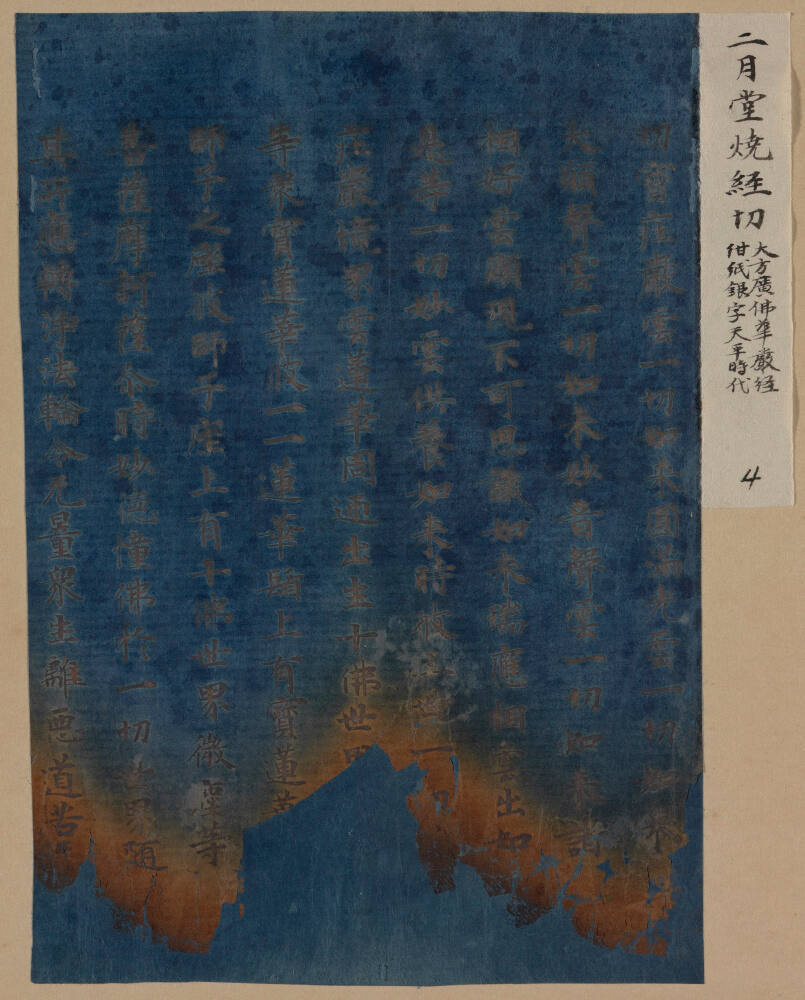 二月堂焼経切
大方廣佛華厳経
紺紙銀字天平時代
4
切寶莊嚴雲一切如來圓滿光雲一切如來
大願聲雲一切如來妙音聲雲一切如來諸
相好雲顯現不可思議如來瑞應相雲出如
是等一切妙雲供養如來時彼 一切
莊嚴境界雲蓮華周迊出生十佛世界
等衆寶蓮華彼一一蓮華 上有寶蓮華
師子之座彼師子座上有十佛世界微塵等
菩薩摩訶薩尒時妙德幢佛於一切世界隨
其所應轉淨法輪令无量衆生離惡道苦